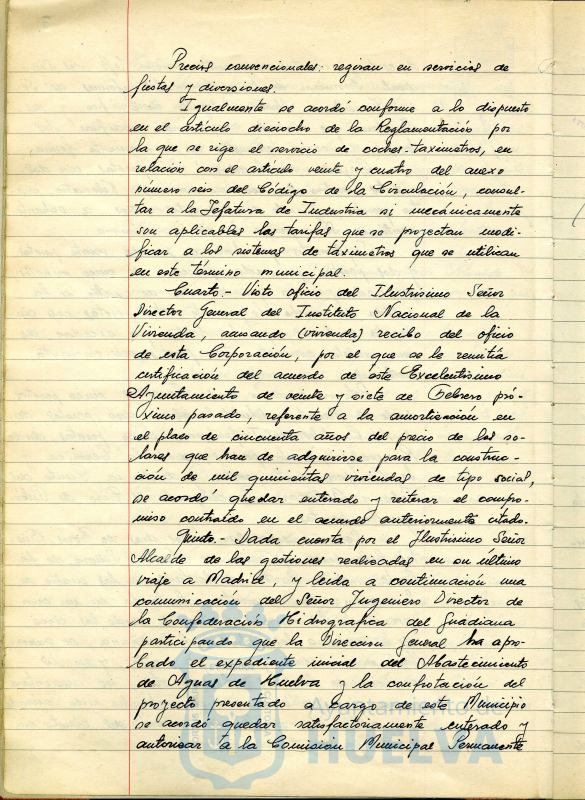 Precios convencionales: regiran en servicios de
fiestas y diversiones.
Igualmente se acordó conforme a lo dispuesto
en el artículo dieciocho de la Reglamentación por
la que se rige el servicio de coches-taximetros, en
relación con el articulo veinte y cuatro del anexo
número seis del Código de la Circulación, consul-
tar a la Jefatura de Industria si mecánicamente
son aplicables las tarifas que se proyectan modi-
ficar a los sistemas de taximetros que se utilican
en este término municipal.
Cuarto.- Visto oficio del Ilustrisimo Señor
Director General del Instituto Nacional de la
Vivienda, acusando (vivienda) recibo del oficio
de esta Corporación, por el que se le remitía
certificación del acuerdo de este Excelentísimo
Ayuntamiento de veinte y siete de Febrero pró-
ximo pasado, referente a la amortización en
el plazo de cincuenta años del precio de los so-
lares que han de adquirirse para la construc-
ción de mil quinientas viviendas de tipo social,
se acordó quedar enterado y reiterar el compro-
miso contraído en el acuerdo anteriormente citado.
Quinto.- Dada cuenta por el Ilustrisimo Señor
Alcalde de las gestiones realizadas en su último
viaje a Madrid, y leida a continuación una
comunicación del Señor Ingeniero Director de
la Confederación Hidrografica del Guadiana
participando que la Direccion General ha apro-
bado el expediente inicial del Abastecimiento
de Aguas de Huelva y la confrotación del
proyecto presentado a cargo de este Municipio
se acordó quedar satisfactoriamente enterado y
autorizar a la Comisión Municipal Permanente
Ayuntamiento de
HUELVA